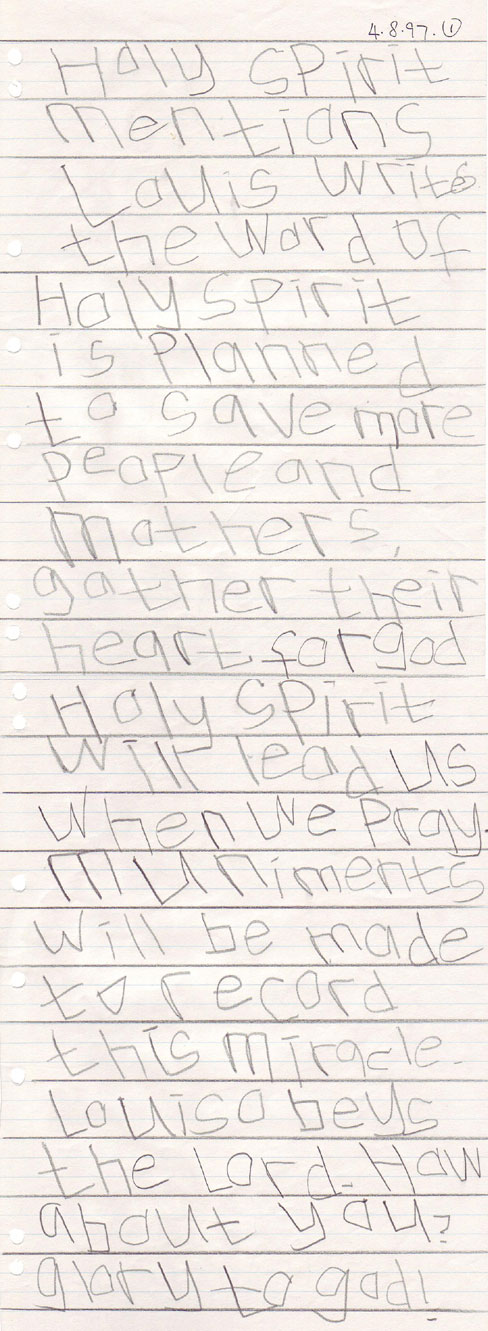 4.8.97. ①
Holy Spirit
mentions
Louis writes
the word of
Holy Spirit
is Planned
to save more
people and
mothers,
gather their
heart for god
Holy Spirit
will lead us
when we Pray.
muniments
will be made
to record
this miracle.
Louis obeys
the Lord. How
about you?
glory to god!